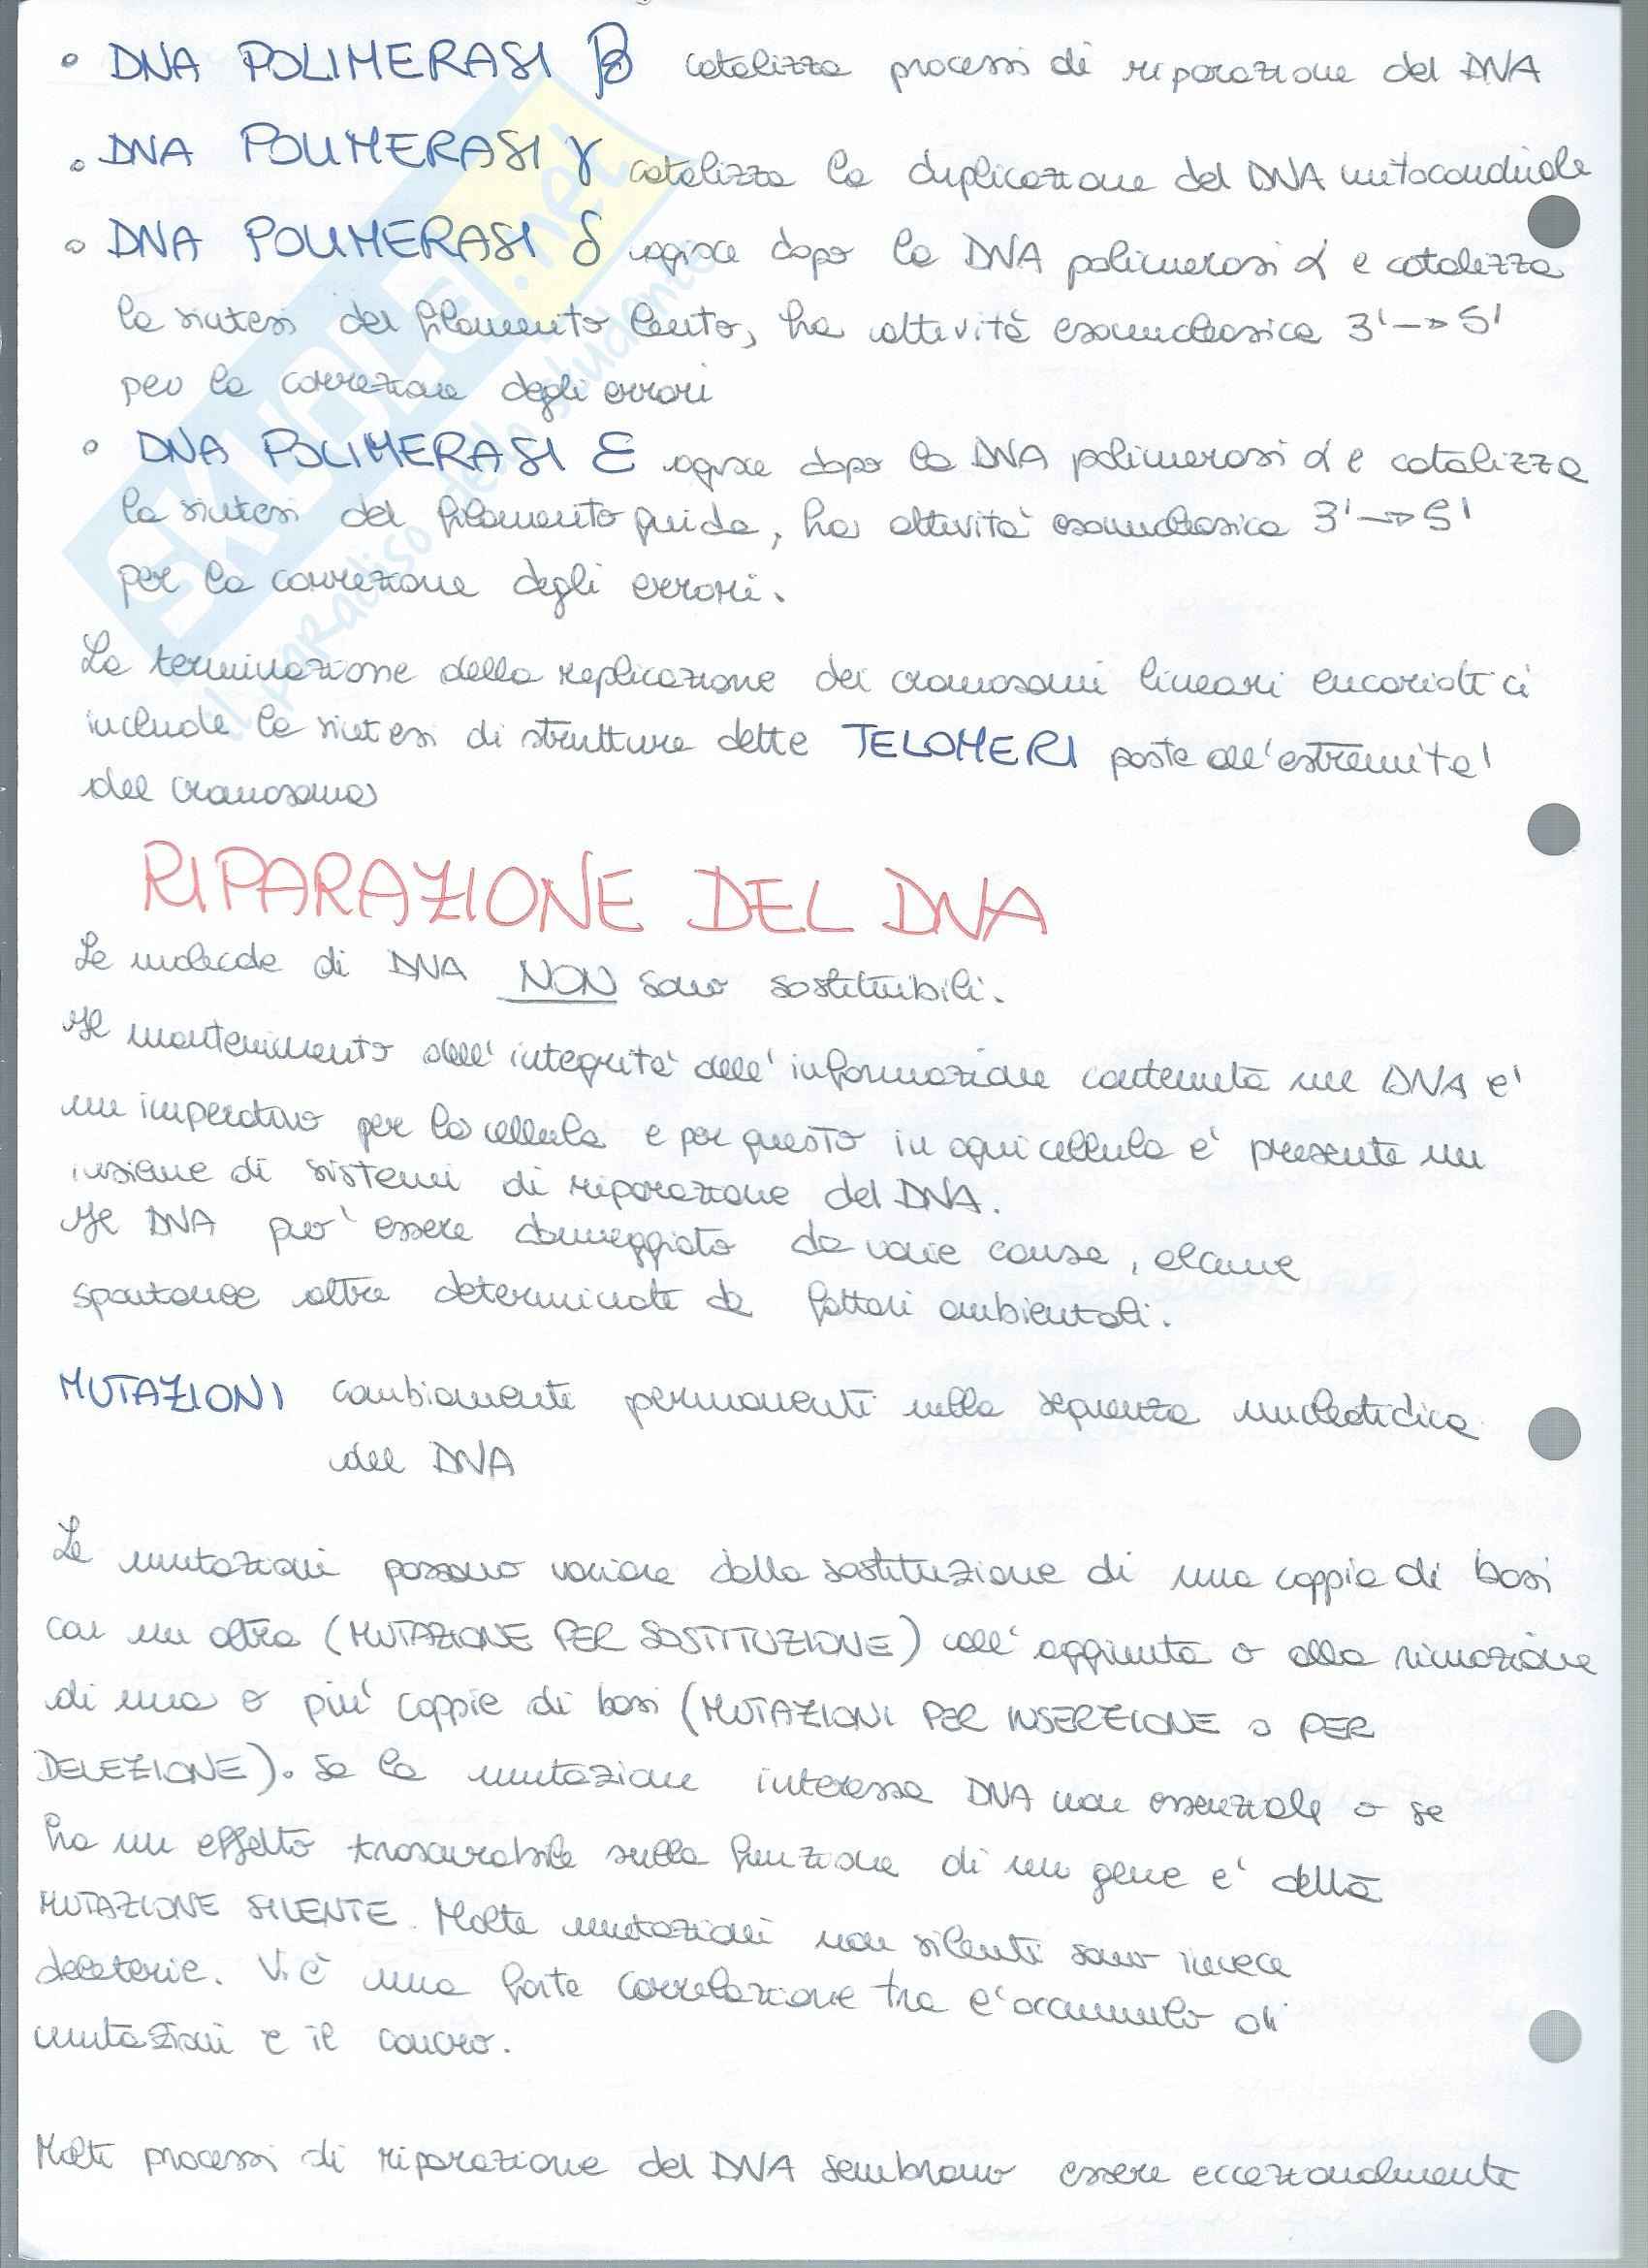 • DNA POLIMERASI β catalizza processi di riparazione del DNA
• DNA POLIMERASI γ catalizza la duplicazione del DNA mitocondriale
• DNA POLIMERASI δ agisce dopo la DNA polimerasi α e catalizza
la sintesi del filamento lento, ha attività esonucleasica 3'→5'
per la correzione degli errori
• DNA POLIMERASI ε agisce dopo la DNA polimerasi α e catalizza
la sintesi del filamento guida, ha attività esonucleasica 3'→5'
per la correzione degli errori.
La terminazione della replicazione dei cromosomi lineari eucariotici
include la sintesi di strutture dette TELOMERI poste all'estremità
del cromosoma
RIPARAZIONE DEL DNA
Le molecole di DNA NON sono sostituibili.
Il mantenimento dell'integrità dell'informazione contenuta nel DNA è
un imperativo per la cellula e per questo in ogni cellula è presente un
insieme di sistemi di riparazione del DNA.
Il DNA può essere danneggiato da varie cause, alcune
spontanee altre determinate da fattori ambientali.
MUTAZIONI cambiamenti permanenti nella sequenza nucleotidica
del DNA
Le mutazioni possono variare dalla sostituzione di una coppia di basi
con un altra (MUTAZIONE PER SOSTITUZIONE) all'aggiunta o alla rimozione
di una o più coppie di basi (MUTAZIONI PER INSERZIONE o PER
DELEZIONE). Se la mutazione interessa DNA non essenziale o se
ha un effetto trascurabile sulla funzione di un gene è detta
MUTAZIONE SILENTE. Molte mutazioni non silenti sono invece
deleterie. Vi è una forte correlazione tra l'accumulo di
mutazioni e il cancro.
Molti processi di riparazione del DNA sembrano essere eccezionalmente
SKUOLA.net
il paradiso dello studente